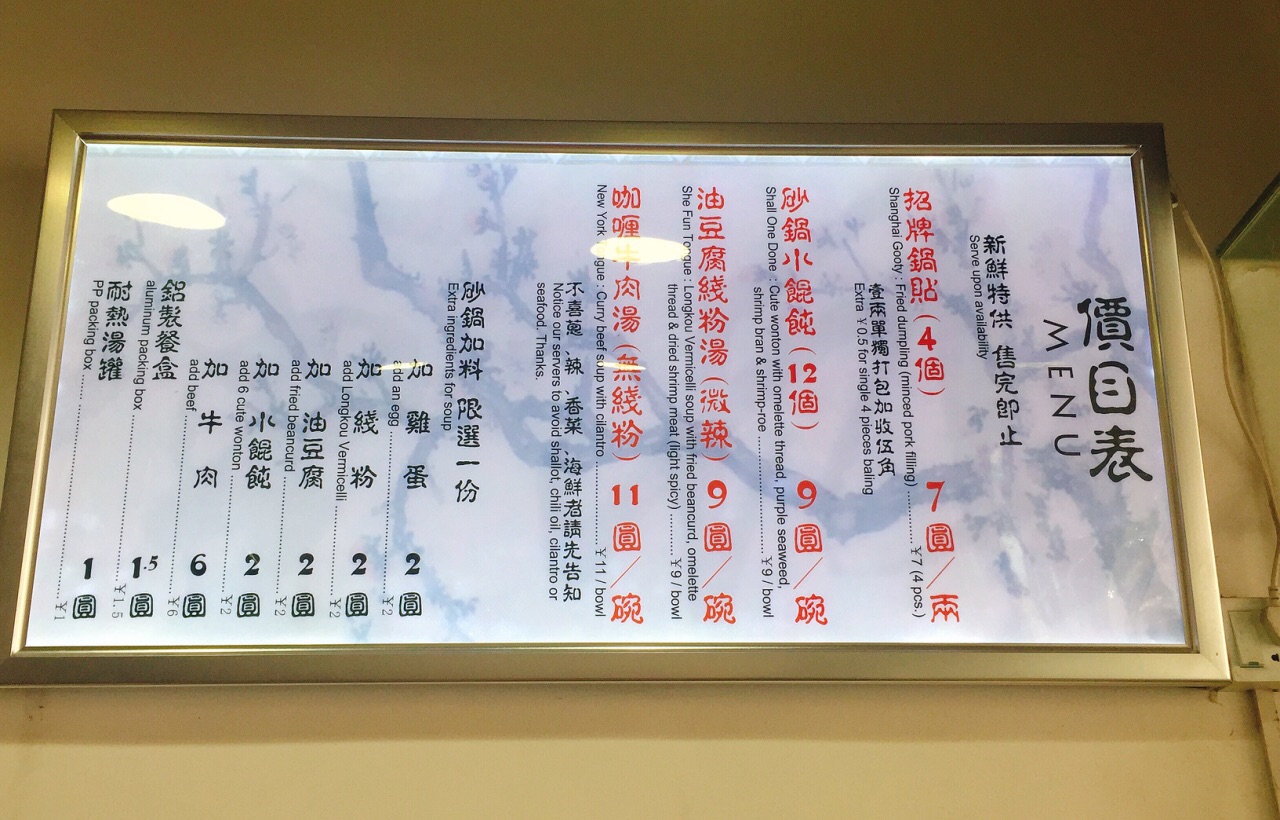 價目表
MENU
新鮮特供 售完即止
Serve upon availability
招牌鍋貼(4個) 7圓/兩
Shanghai Goody : Fried dumpling (minced pork filling) ........ ¥7 (4 pcs.)
壹兩單獨打包加收伍角
Extra ¥0.5 for single 4 pieces baling
砂鍋小餛飩(12個) 9圓/碗
Shall One Done : Cute wonton with omelette thread, purple seaweed,
shrimp bran & shrimp-roe ........ ¥9 / bowl
油豆腐綫粉湯(微辣) 9圓/碗
She Fun Tongue : Longkou Vermicelli soup with fried beancurd, omelette
thread & dried shrimp meat (light spicy) ........ ¥9 / bowl
咖喱牛肉湯(無綫粉) 11圓/碗
New York Tongue : Curry beef soup with cilantro ........ ¥11 / bowl
不喜蔥、辣、香菜、海鮮者請先告知
Notice our servers to avoid shallot, chili oil, cilantro or
seafood. Thanks.
砂鍋加料 限選一份
Extra ingredients for soup
加雞蛋 2圓
add an egg ........ ¥2
加綫粉 2圓
add Longkou Vermicelli ........ ¥2
加油豆腐 2圓
add fried beancurd ........ ¥2
加小餛飩 2圓
add 6 cute wonton ........ ¥2
加牛肉 6圓
add beef ........ ¥6
鋁製餐盒 1.5圓
aluminum packing box ........ ¥1.5
耐熱湯罐 1圓
PP packing box ........ ¥1